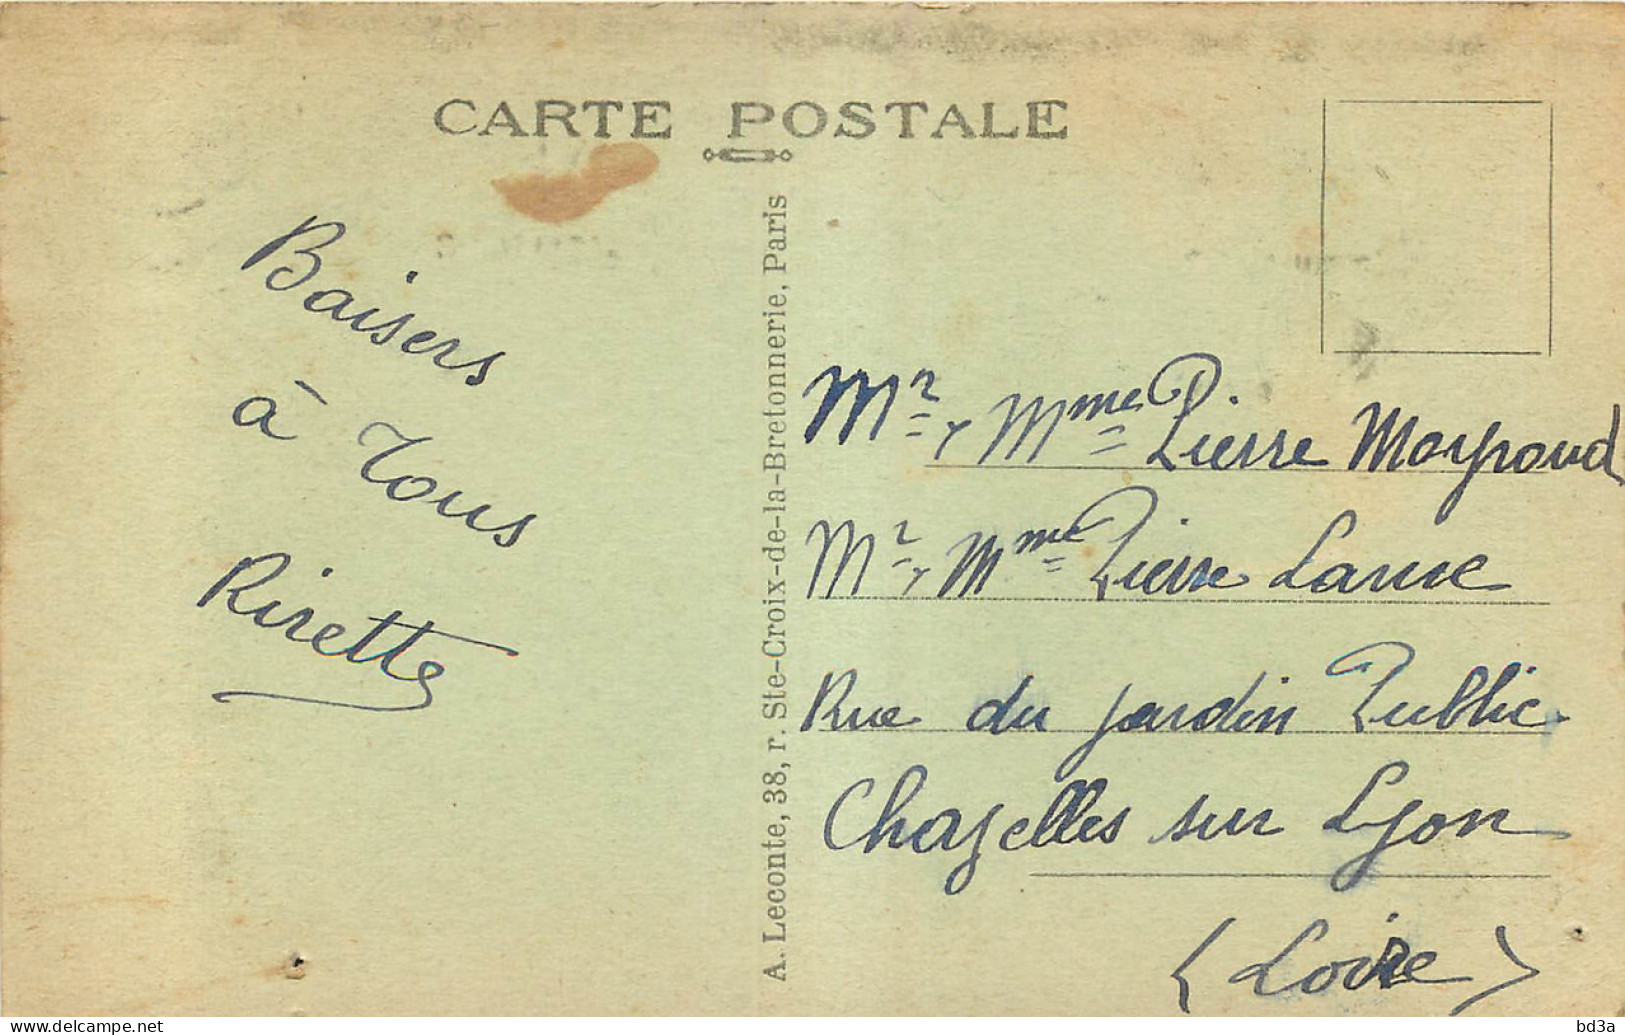 CARTE POSTALE
Baisers
à Tous
Rirette
A. Leconte, 38, r. Ste-Croix-de-la-Bretonnerie, Paris
Mr & Mme Pierre
Mr & Mme Pierre
Rue du jardin Public
Chazelles sur Lyon
(Loire)
delcampe.net
bd3a